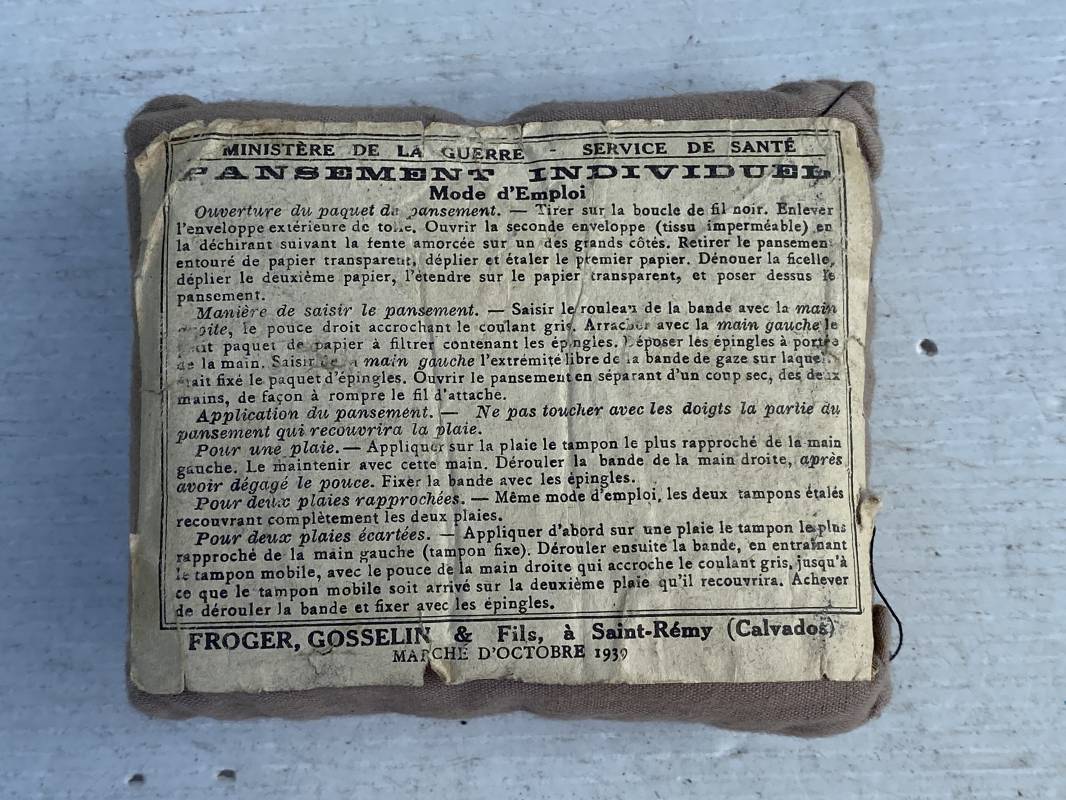 MINISTÈRE DE LA GUERRE - SERVICE DE SANTÉ
PANSEMENT INDIVIDUEL
Mode d'Emploi
Ouverture du paquet de pansement. — Tirer sur la boucle de fil noir. Enlever
l'enveloppe extérieure de toile. Ouvrir la seconde enveloppe (tissu imperméable) en
la déchirant suivant la fente amorcée sur un des grands côtés. Retirer le pansement
entouré de papier transparent, déplier et étaler le premier papier. Dénouer la ficelle,
déplier le deuxième papier, l'étendre sur le papier transparent, et poser dessus le
pansement.
Manière de saisir le pansement. — Saisir le rouleau de la bande avec la main
droite, le pouce droit accrochant le coulant gris. Arracher avec la main gauche le
petit paquet de papier à filtrer contenant les épingles. Déposer les épingles à portée
de la main. Saisir de la main gauche l'extrémité libre de la bande de gaze sur laquelle
était fixé le paquet d'épingles. Ouvrir le pansement en séparant d'un coup sec, des deux
mains, de façon à rompre le fil d'attache.
Application du pansement. — Ne pas toucher avec les doigts la partie du
pansement qui recouvrira la plaie.
Pour une plaie. — Appliquer sur la plaie le tampon le plus rapproché de la main
gauche. Le maintenir avec cette main. Dérouler la bande de la main droite, après
avoir dégagé le pouce. Fixer la bande avec les épingles.
Pour deux plaies rapprochées. — Même mode d'emploi, les deux tampons étalés
recouvrant complètement les deux plaies.
Pour deux plaies écartées. — Appliquer d'abord sur une plaie le tampon le plus
rapproché de la main gauche (tampon fixe). Dérouler ensuite la bande, en entraînant
le tampon mobile, avec le pouce de la main droite qui accroche le coulant gris, jusqu'à
ce que le tampon mobile soit arrivé sur la deuxième plaie qu'il recouvrira. Achever
de dérouler la bande et fixer avec les épingles.
FROGER, GOSSELIN & Fils, à Saint-Rémy (Calvados)
MARCHÉ D'OCTOBRE 1939